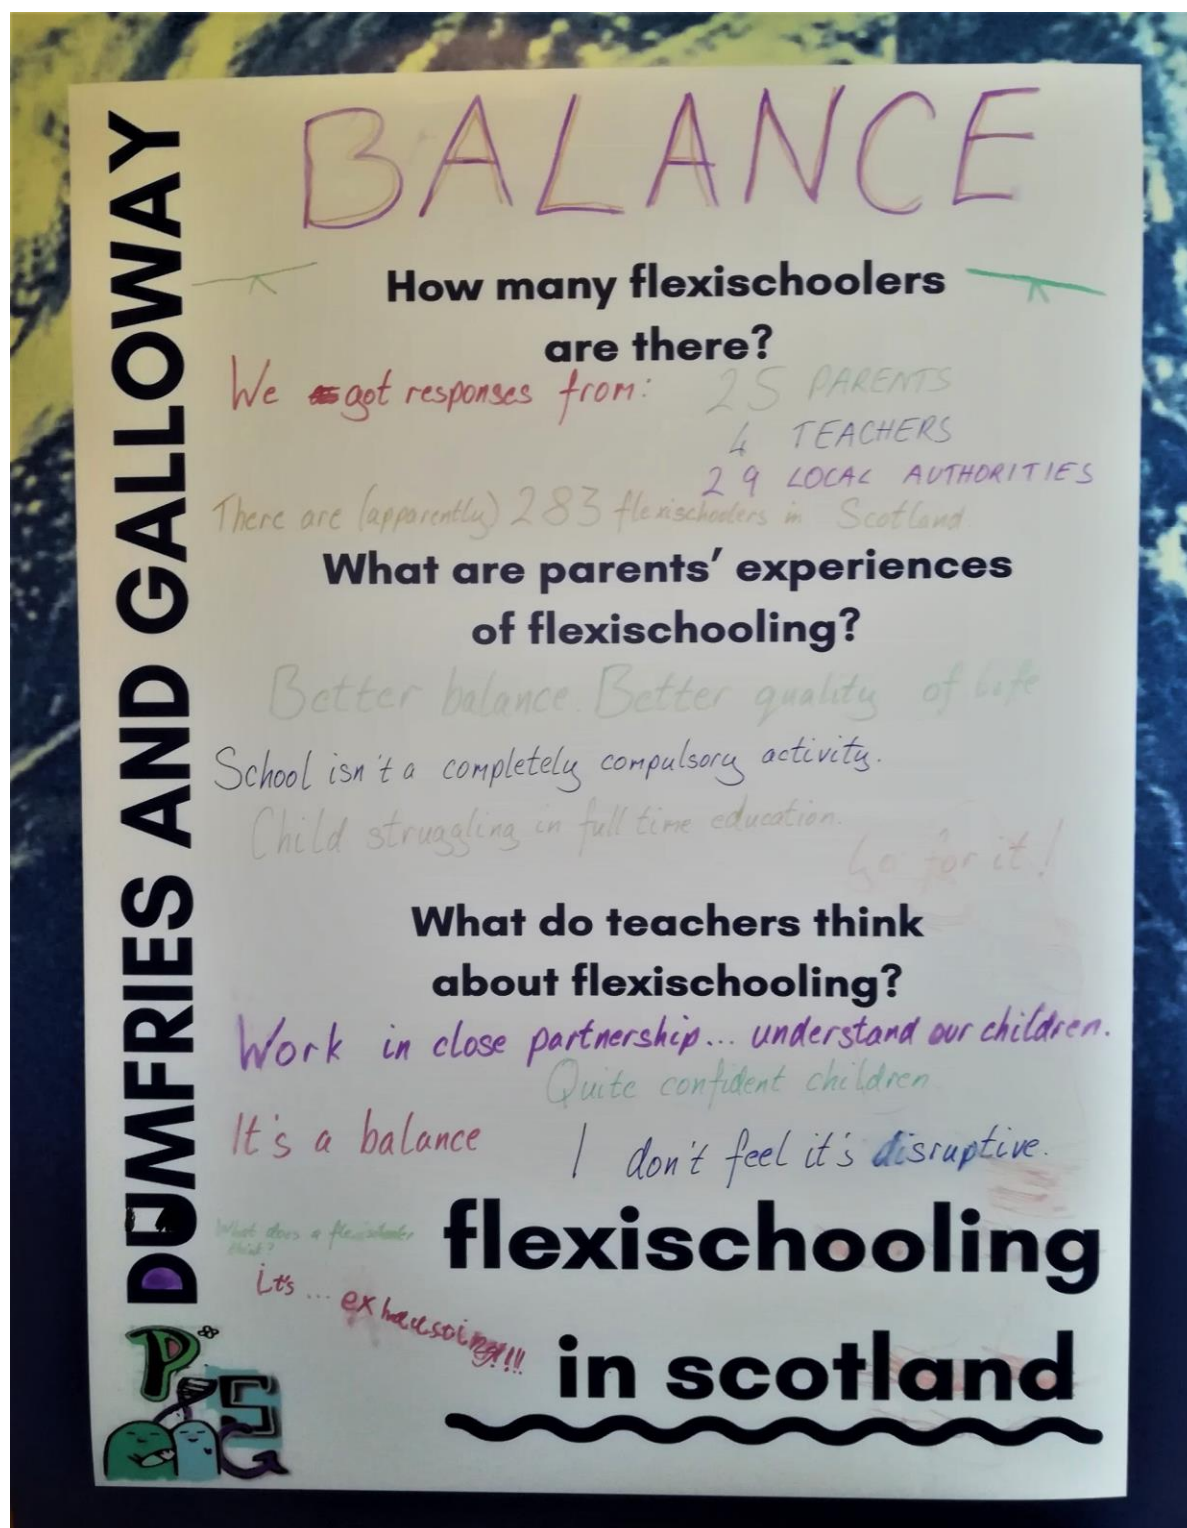 BALANCE
DUMFRIES AND GALLOWAY
How many flexischoolers
are there?
We got responses from: 25 PARENTS
4 TEACHERS
29 LOCAL AUTHORITIES
There are (apparently) 283 flexischoolers in Scotland.
What are parents' experiences
of flexischooling?
Better balance. Better quality of life
School isn't a completely compulsory activity.
Child struggling in full time education.
Go for it!
What do teachers think
about flexischooling?
Work in close partnership... understand our children.
Quite confident children
It's a balance
I don't feel it's disruptive.
What does a flexischooler
think?
it's ... exhausting!!!
flexischooling
in scotland
PSG